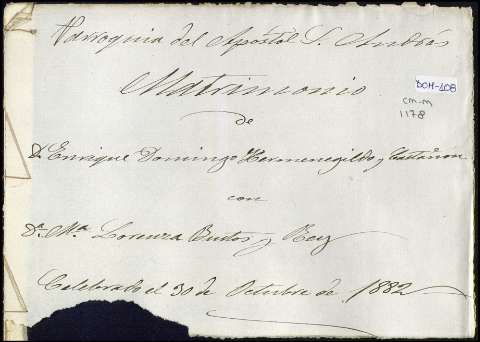 Parroquia del Apóstol S. Andrés
Matrimonio
de
Dn Enrique Domingo Hermenegildo y Castañon
con
Da Ma Lorenza Bustos y Rey
Celebrado el 30 de Octubre de 1882
DCH-108
cm-m
1178